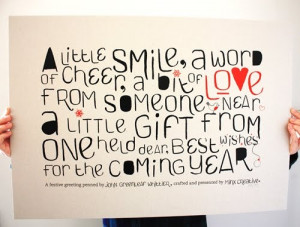 A LITTLE SMILE, A WORD
OF CHEER, A BIT OF LOVE
FROM SOMEONE NEAR
A LITTLE GIFT FROM
ONE HELD DEAR. BEST WISHES
FOR THE COMING YEAR
A festive greeting penned by John Greenleaf Whittier, crafted and presented by Minx Creative.